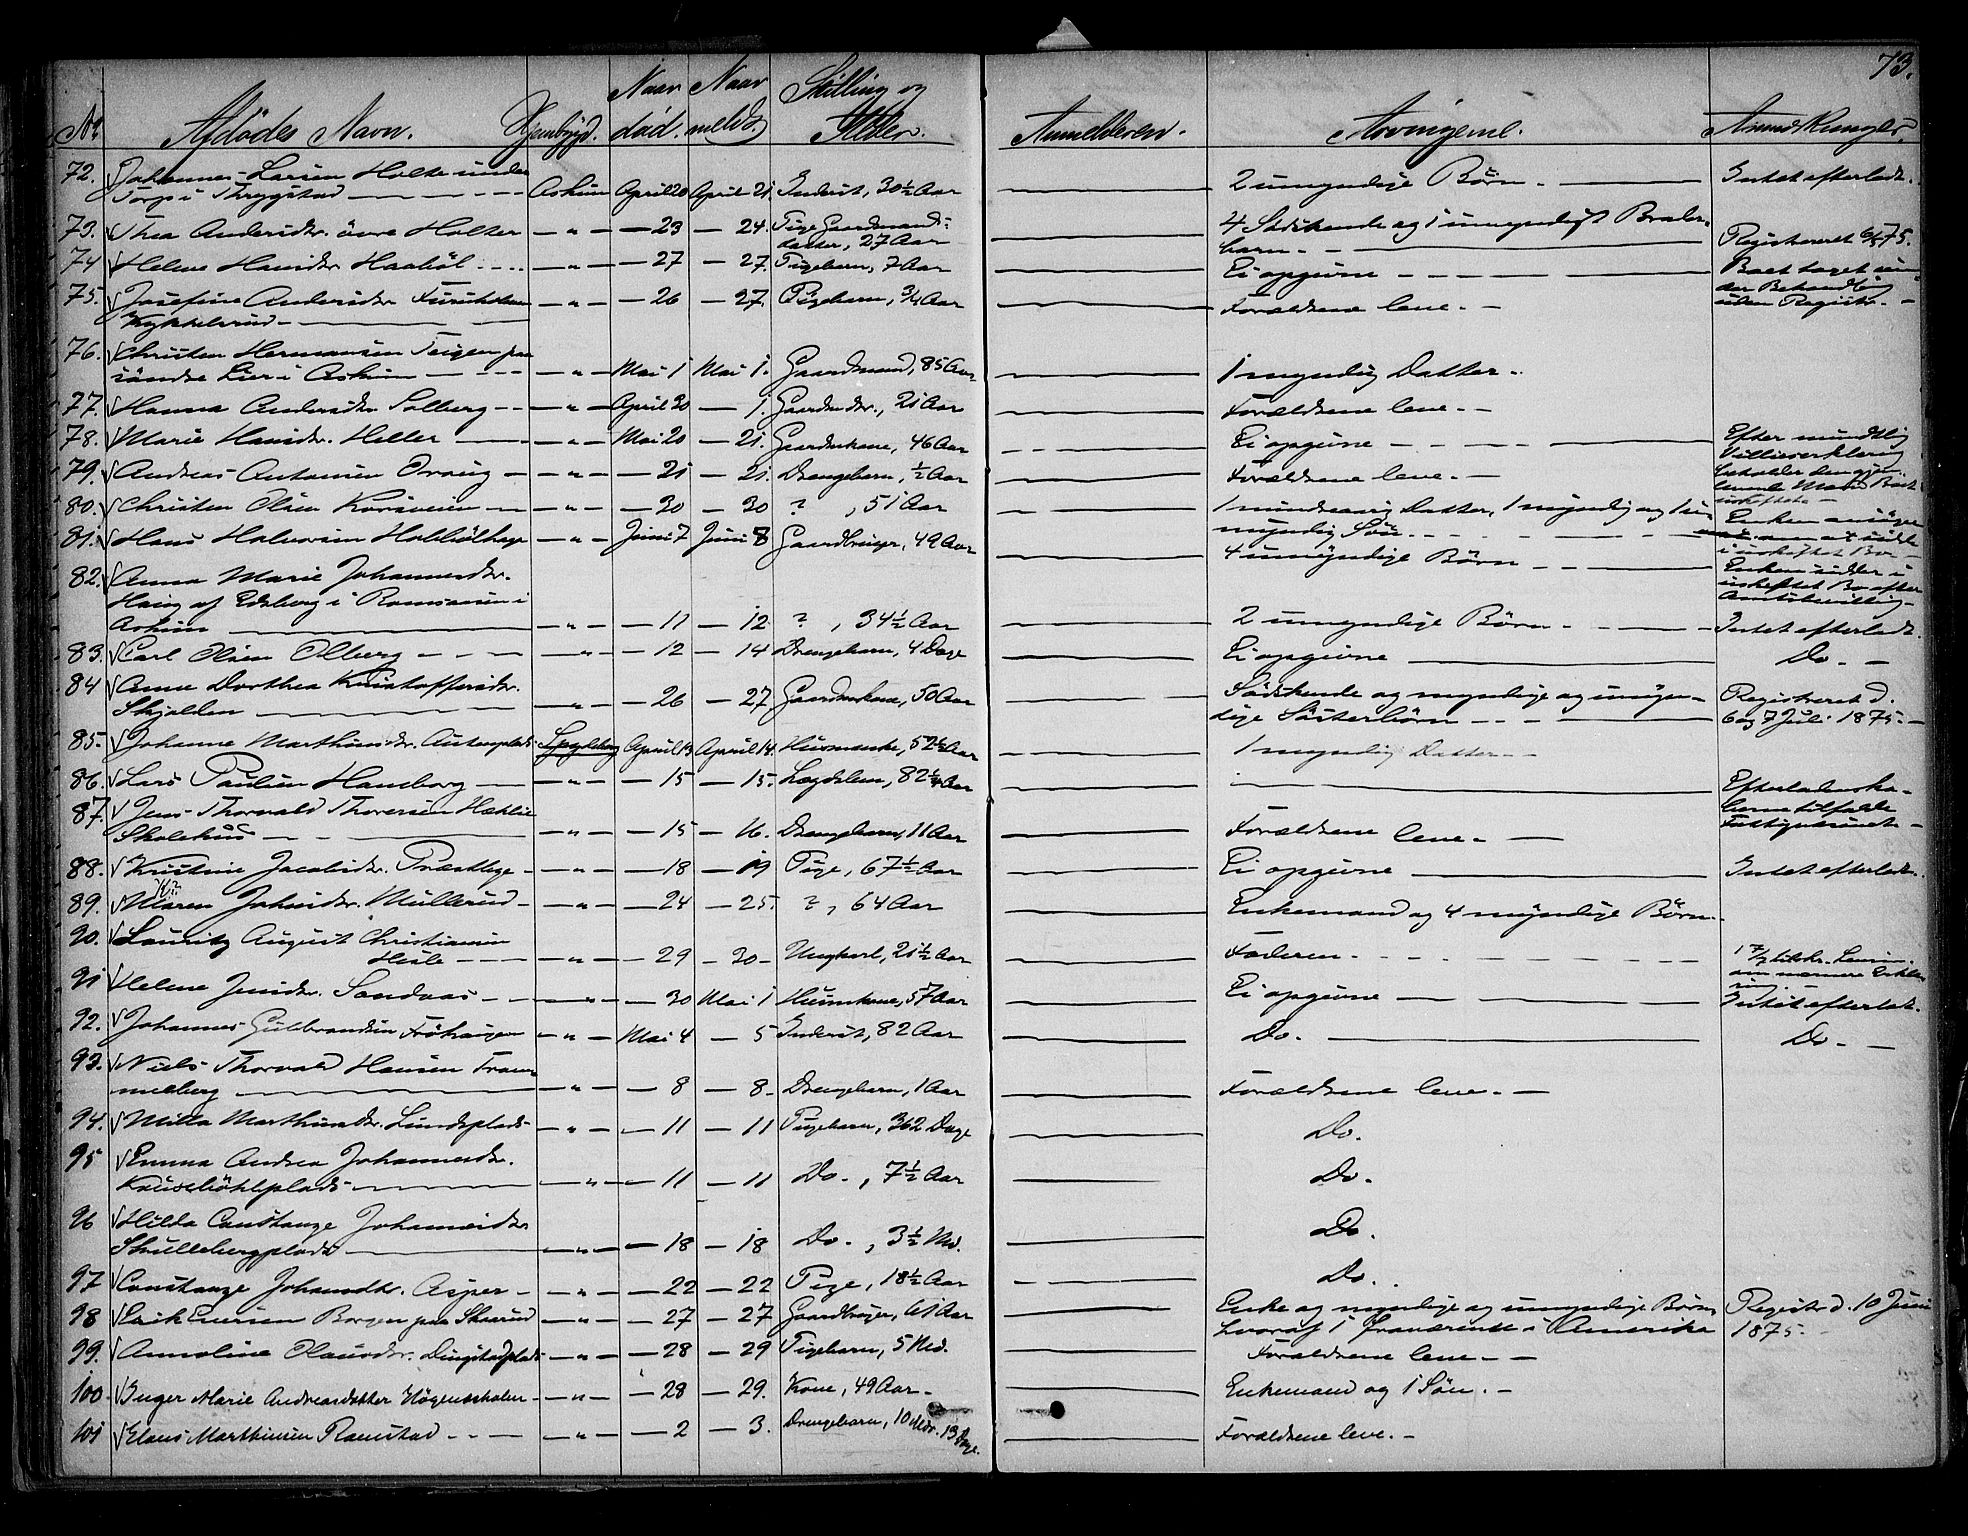 73.
No. Afdödes Navn. Hjembygd. Naar död. Naar meldt. Stilling og Alder. Anmelderen. Arvingerne. Anmærkninger.
72. Johannes Larsen Holte under
Torp i Thrygstad Askim April 20 April 21. Inderst, 30½ Aar 2 umyndige Börn. Intet efterladt.
73. Thea Andersdtr. övre Holter — " — — 23 — 24. Pige Gaardmands-
datter, 27 Aar 4 Södskende og 1 umyndigt Broder-
barn. Registreret 6/5 75.
74 Helene Hansdr. Haaböl — " — — 27 — 27. Pigebarn, 7 Aar Ei opgivne Boet taget un-
der Behandling
uden Registr.
75. Josefine Andersdr.
Kykkelsrud — " — — 26 — 27. Pigebarn, ¾ Aar Forældrene leve.
76. Christen Hermansen Teigen paa
söndre Lier i Askim — " — Mai 1 Mai 1. Gaardmand, 85 Aar 1 myndig Datter.
77. Hanna Andersdr. Solberg — " — April 30 — 1. Gaardmdr., 21 Aar Forældrene leve.
78. Marie Hansdr. Heller — " — Mai 20 — 21. Gaardmkone, 46 Aar Ei opgivne Efter mundtlig
Villieserklæring
beholder den gjen-
levende Mand Boet
uskiftet
79. Andreas Antonsen Oraug — " — — 21 — 21. Drengebarn, ½ Aar Forældrene leve.
80. Christen Olsen Korsveien — " — — 30 — 30 ? , 51 Aar 1 mindreaarig Datter, 1 myndig og 1 u-
myndig Sön. Enken ansöger
om at sidde
i uskiftet Bo
81. Hans Halvorsen — " — Juni 7 Juni 8 Gaardbruger, 49 Aar 4 umyndige Börn Enken sidder i
uskiftet Bo efter
Amtsbevilling
82. Anna Marie Johannesdr.
Haug af Edsberg i Romsaasen i
Askim — " — — 11 — 12 ? , 34½ Aar 2 umyndige Börn Intet efterladt.
83. Carl Olsen Olberg — " — — 12 — 14 Drengebarn, 4 Dage Ei opgivne Do.
84 Anne Dorthea Kristoffersdr.
Skjolden — " — — 26 — 27 Gaardmkone, 50 Aar Södskende og myndige og umyn-
dige Sösterbörn Registreret d.
6 og 7 Juli 1875.
85. Johanne Marthinsdr. April 13 April 14. Husmenke, 52½ Aar 1 myndig Datter
86. Lars Paulsen Hamborg — " — — 15 — 15. Lægdslem, 82¼ Aar Efterladenska-
berne tilfaldt
Fattigvæsenet
87. Jens Thorvald Thoresen
Skolehus — " — — 15 — 16. Drengebarn, 11 Aar Forældrene leve.
88. Kristine Jacobsdr. — " — — 18 — 19 Pige, 67½ Aar Ei opgivne Intet efterladt.
89. Maren Johnsdr. Müllerud — " — — 24 — 25. ? , 64 Aar Enkemand og 4 myndige Börn.
90. Lauritz August Christiansen
— " — — 29 — 30 Ungkarl, 21½ Aar Faderen.
91 Helene Jensdr. Sandaas — " — — 30 Mai 1 Husmkone, 57 Aar Ei opgivne Intet efterladt.
92. Johannes Gulbrandsen Fröhaugen — " — Mai 4 — 5 Inderst, 82 Aar Do. Do.
93. Niels Thorvald Hansen Tram-
melberg — " — — 8 — 8. Drengebarn, 1 Aar Forældrene leve.
94. Milla Marthinsdr. Lundsplads — " — — 11 — 11 Pigebarn, 362 Dage Do.
95 Emma Andrea Johannesdr.
— " — — 11 — 11 Do. , 7½ Aar Do.
96 Hilda Constanze Johannesdr.
Skullebergplads — " — — 18 — 18 Do. , 3½ Md. Do.
97 Constanze Johansdtr. Asper — " — — 22 — 22 Pige, 18½ Aar Do.
98 Erik Eversen Borgen paa Skaarud — " — — 27 — 27 Gaardbruger, 61 Aar Enke og myndige og umyndige Börn,
hvoraf 1 fraværende i Amerika Registr d. 10 Juni
1875.
99. Annoline Olausdr. — " — — 28 — 29 Pigebarn, 5 Md. Forældrene leve.
100. Inger Marie Andreasdatter — " — — 28 — 29. Kone, 49 Aar Enkemand og 1 Sön.
101 Claus Marthinsen Ramstad — " — — 2 — 3. Drengebarn, 10 Mdr. 13 Dage. Forældrene leve.